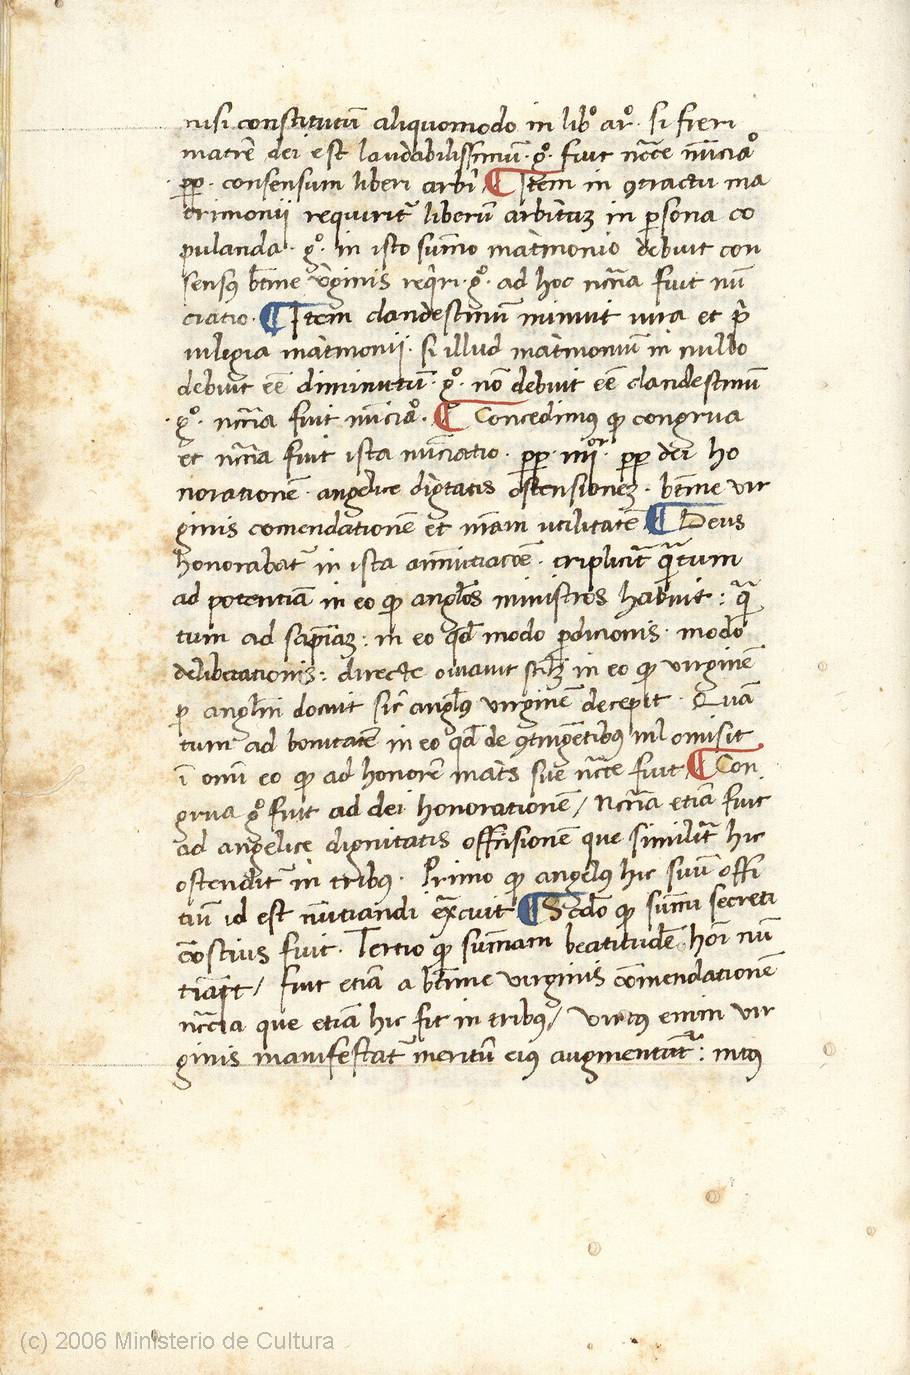 nisi constitutũ aliquomodo in libº arº. si fieri
matrẽ dei est laudabilissimũ. gº. fuit nc̃ce nũciaº
pp. consensum liberi arbi. ¶ Item in 9tractu ma
trimonii requirit᷑ liberũ arbitriũ in psona co
pulanda. gº. in isto sum̃o matrimonio debuit con
sensꝰ bt̃me v̓ginis req̓ri. gº. ad hoc nc̃c̃ia fuit nũ
ciatio. ¶ Item clandestinũ minuit iura et p̃
uilegia matrimonij. si illud matrimoniũ in nullo
debuit eẽ diminutũ. gº. nõ debuit eẽ clandestinũ
gº. nc̃c̃ia fuit nũciaº. ¶ Concedimꝰ ꝙ congrua
et nc̃c̃ia fuit ista nũciatio. pp. iiijor. pp dei ho
norationẽ. angelice dig̃tatis ostensionẽ. bt̃me vir
ginis comendationẽ et nr̃am utilitatẽ. ¶ Deus
honorabat᷑ in ista annũtiacõe. triplicit̓ quãtum
ad potentiã in eo ꝙ angelos ministros habuit: quã
tum ad sapiãz: in eo qd̃ modo pdicionis. modo
deliberationis: directe obuiauit scil in eo ꝙ virginẽ
p angelũ docuit sic̃ angelꝰ virginẽ decepit. Quã
tum ad bonitatẽ in eo qd̃ de 9tingẽtibus nil omisit
ĩ omi eo ꝙ ad honorẽ mat̓s sue nc̃ce fuit ¶ Con
grua gº fuit ad dei honorationẽ / Nc̃c̃ia etiã fuit
ad angelice dignitatis ostensionẽ que similit̓ hic
ostendit᷑ in tribꝰ. Primo ꝙ angelꝰ hic suũ offi
tiũ id est nũtiandi ex̃cuit ¶ Sc̃do ꝙ sum̃i secreti
cõscius fuit. Tertio ꝙ sum̃am beatitudẽ hoĩ nũ
tiauit / fuit etiã a bt̃me virginis cõmendationẽ
nc̃c̃ia que etiã hic fit in tribꝰ / virtꝰ enim vir
ginis manifestat᷑ meritũ eiꝰ augmentat᷑: intꝰ
(c) 2006 Ministerio de Cultura